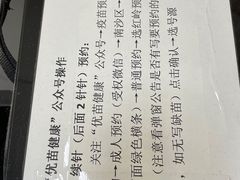 优苗健康”公众号操作
续针（后面 2 针针）预约：
关注“优苗健康”公众号→疫苗预
→成人预约（受权微信）→南沙区→
面绿色横条）→普通预约→选红岭预
（注意看弹窗公告是否有写要预约的
，如无写缺苗，点击确认→选号源